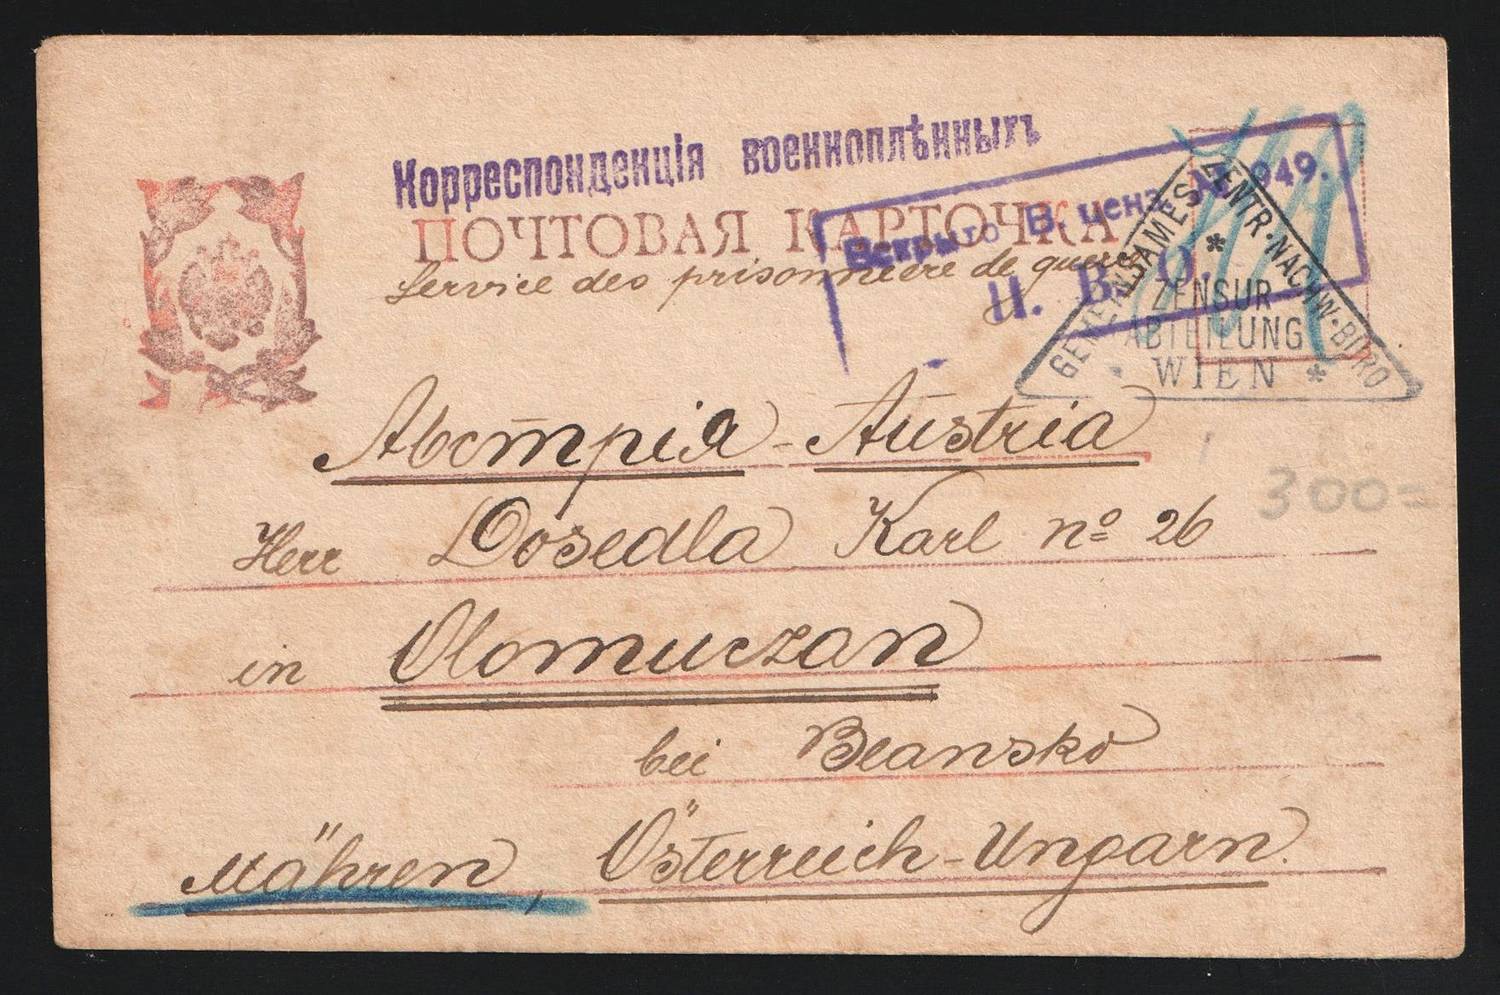 Корреспонденція военноплѣнныхъ
ПОЧТОВАЯ КАРТОЧКА
Service des prisonniere de guerre
Вскрыто В. ценз. № 949.
П. В. О.
GEMEINSAMES ZENTR.NACHW.BÜRO
ZENSUR
ABTEILUNG
WIEN
Австрія - Austria
300=
Herr Dosedla Karl nº 26
in Olomuczan
bei Blansko
Mähren, Österreich-Ungarn.